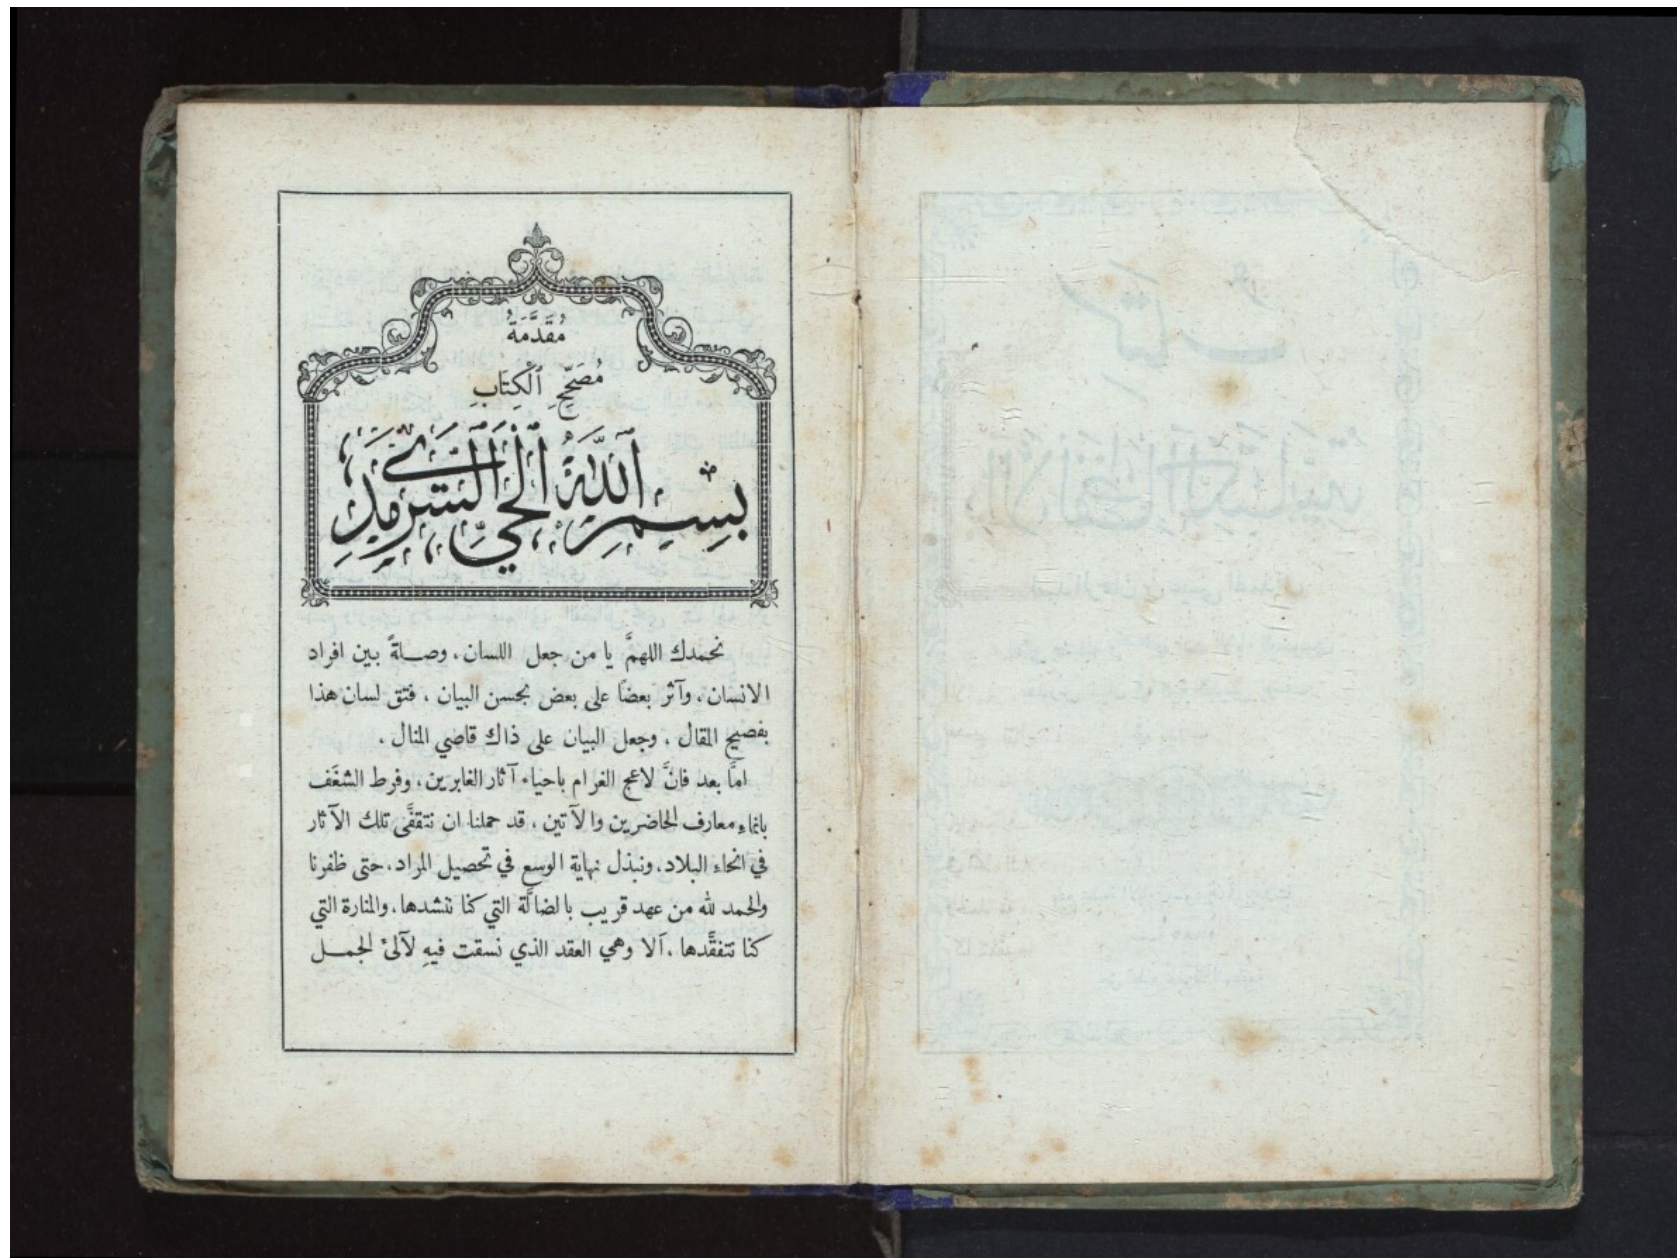 مُقَدَّمَةُ
مُصَحِّحِ ٱلْكِتَابِ
بِسْمِ ٱللَّهِ ٱلْحَيِّ ٱلسَّرْمَدِيِّ
نحمدك اللهمَّ يا من جعل اللسان، وصلةً بين افراد
الانسان، وآثر بعضًا على بعض بحسن البيان، ففتق لسان هذا
بفصيح المقال، وجعل البيان على ذاك قاصي المنال.
امَّا بعد فانَّ لاعج الغرام باحياء آثار الغابرين، وفرط الشغَف
بانماء معارف الحاضرين والآتين، قد حملنا ان نتقفَّى تلك الآثار
في انحاء البلاد، ونبذل نهاية الوسع في تحصيل المراد، حتى ظفرنا
والحمد لله من عهد قريب بالضالَّة التي كنا ننشدها، والمنارة التي
كنا نتفقَّدها، ألا وهي العقد الذي نسقت فيهِ لآلئ الجمل